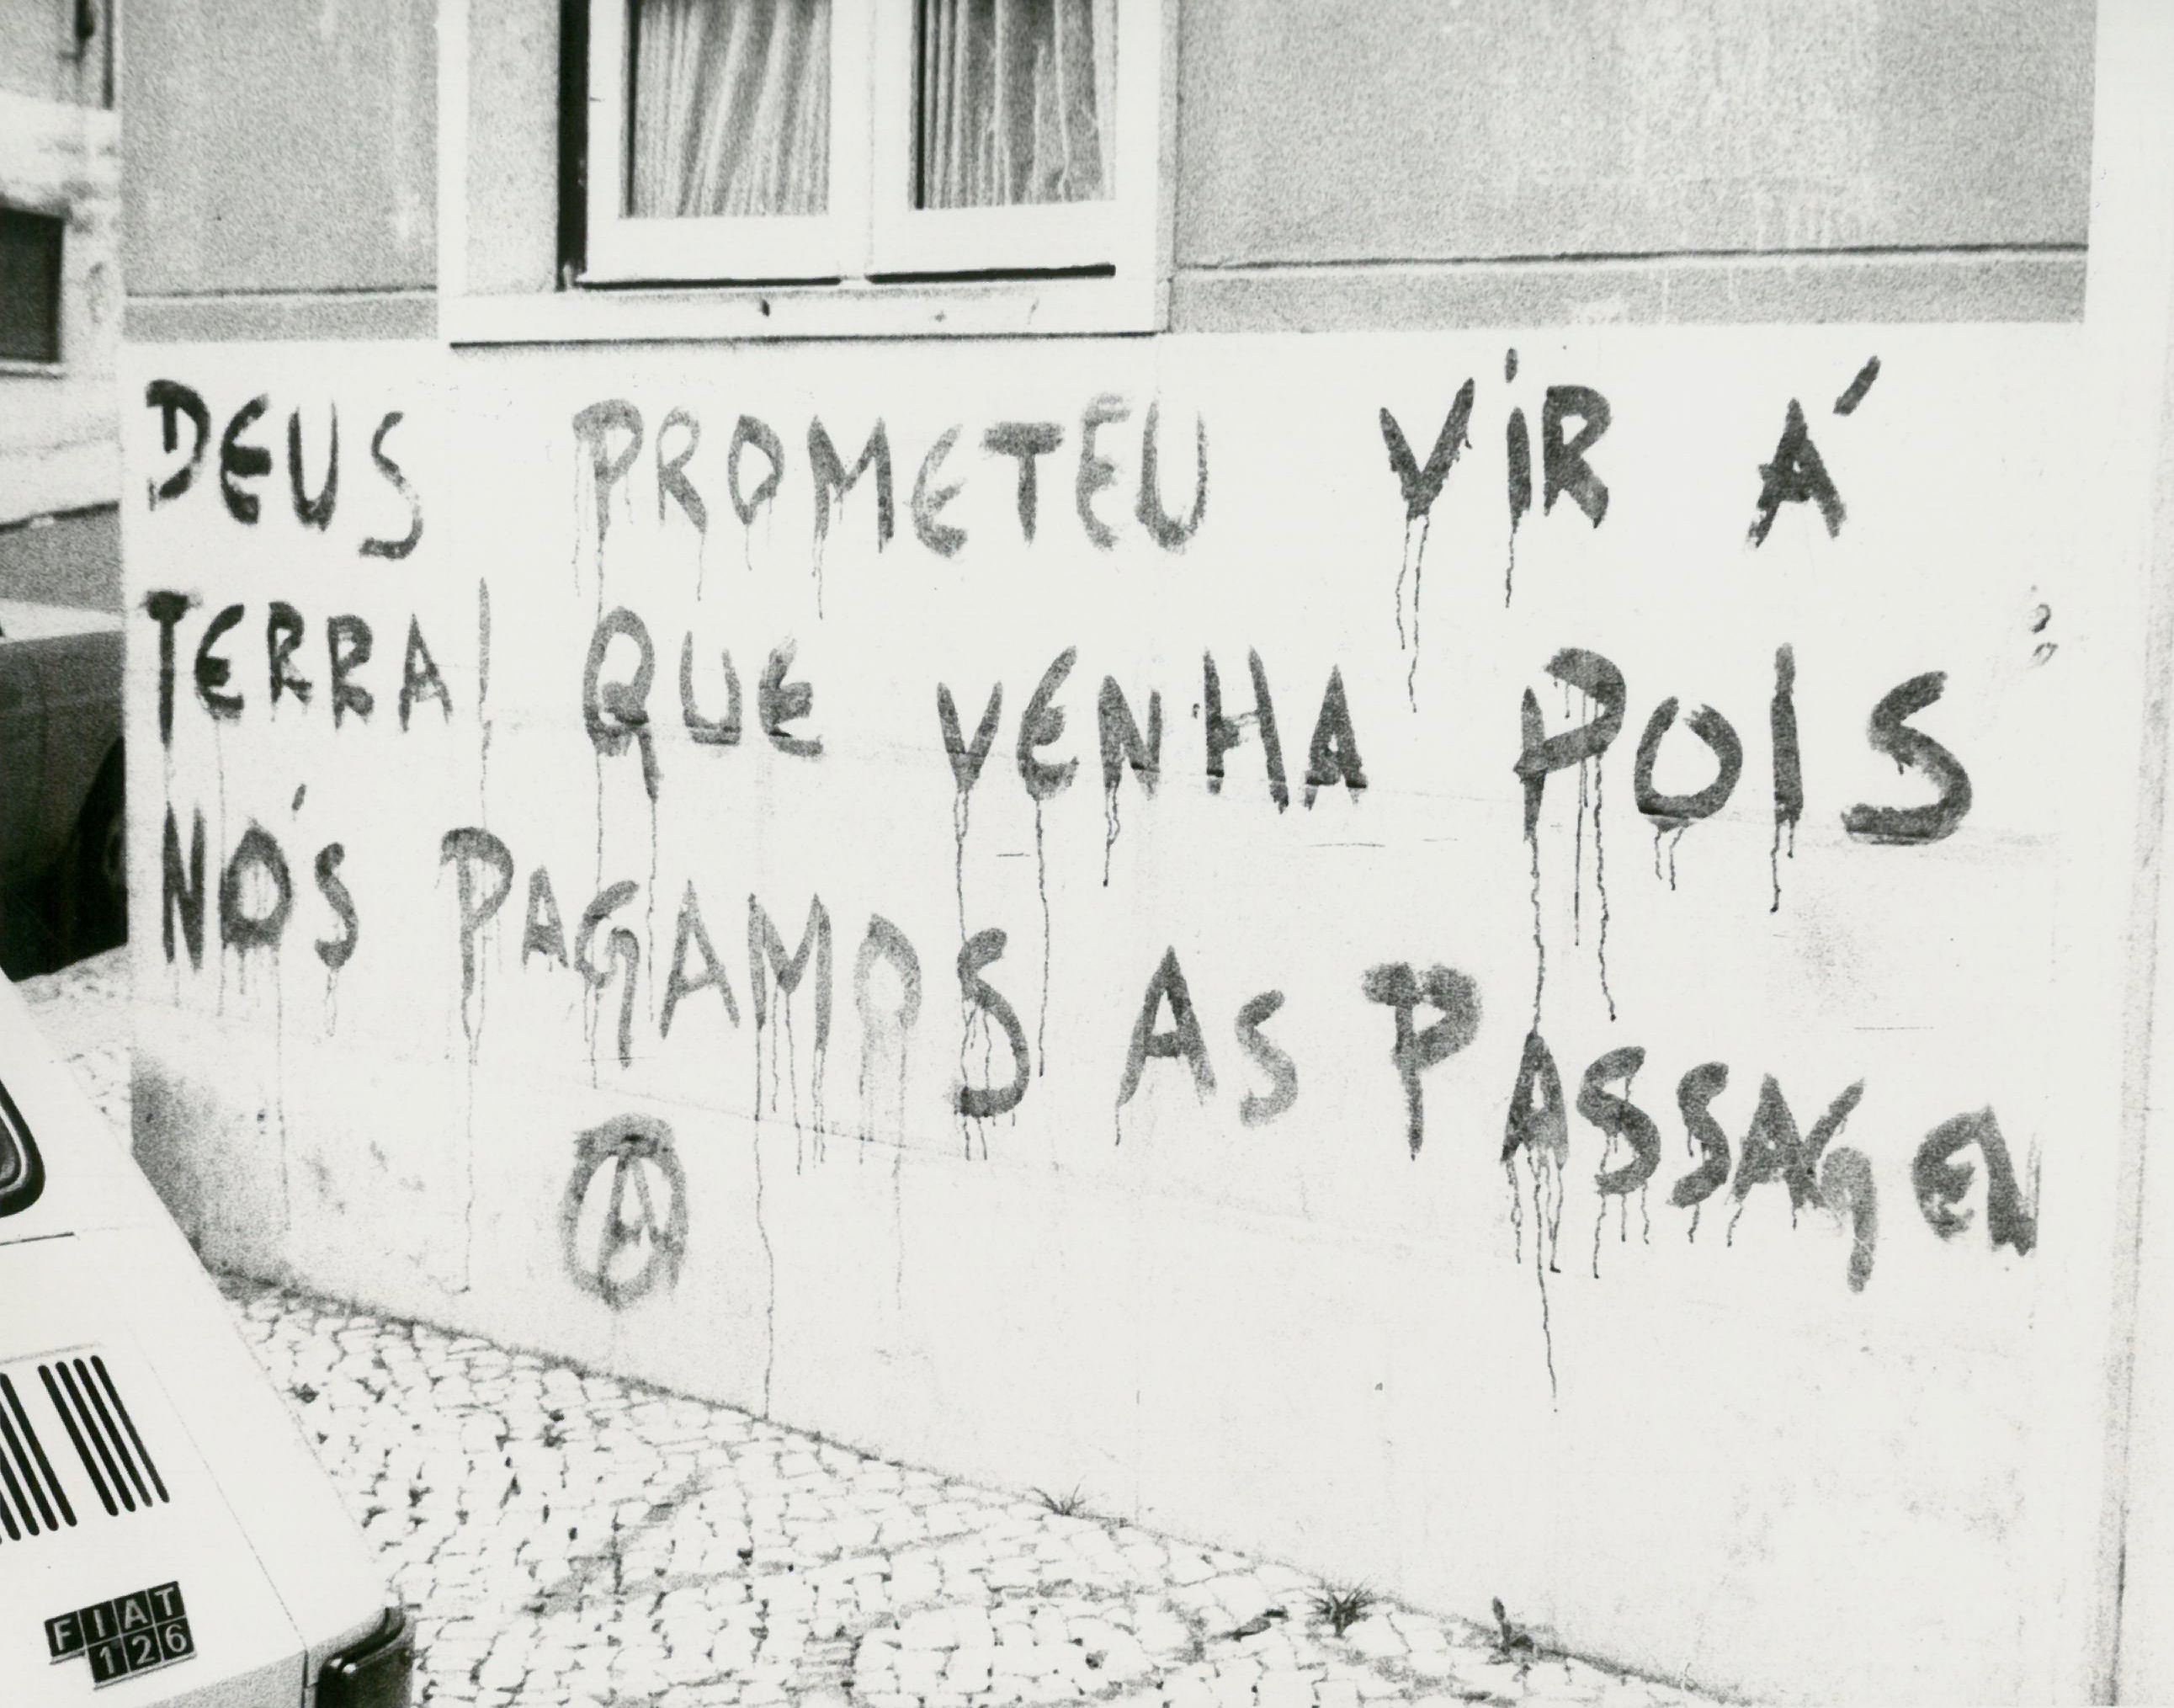 DEUS PROMETEU VIR Á
TERRA! QUE VENHA POIS
NÓS PAGAMOS AS PASSAGEN
Ⓐ
FIAT
126